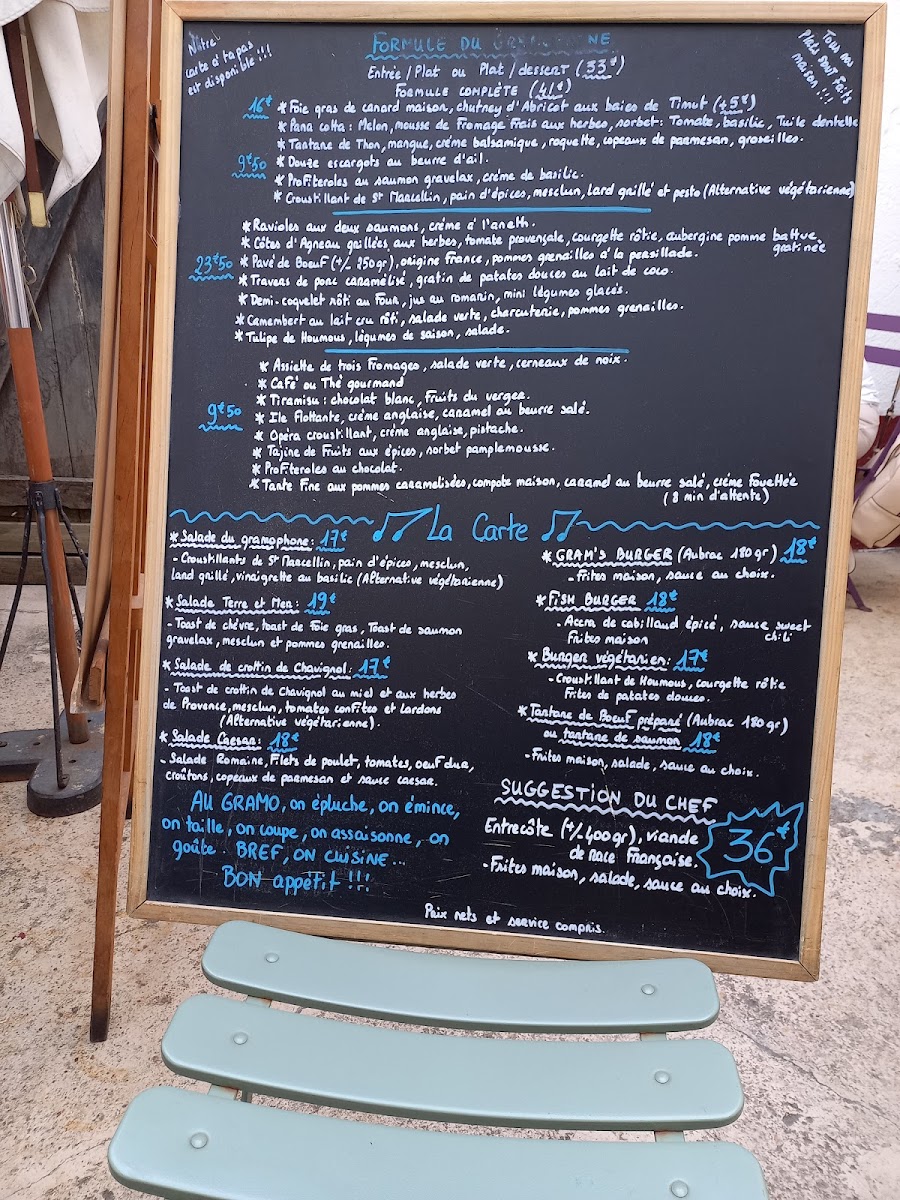 Notre
carte à tapas
est disponible !!!
Tous nos
plats sont faits
maison !!!
FORMULE DU
Entrée / Plat ou Plat / dessert (33€)
FORMULE COMPLÈTE (41€)
16€ * Foie gras de canard maison, chutney d'Abricot aux baies de Timut (+5€)
* Pana cotta : Melon, mousse de Fromage Frais aux herbes, sorbet : Tomate, basilic, Tuile dentelle
* Tartare de Thon, mangue, crème balsamique, roquette, copeaux de parmesan, groseilles.
9€50 * Douze escargots au beurre d'ail.
* Profiteroles au saumon gravelax, crème de basilic.
* Croustillant de St Marcellin, pain d'épices, mesclun, lard grillé et pesto (Alternative végétarienne)
* Ravioles aux deux saumons, crème à l'aneth.
* Côtes d'Agneau grillées aux herbes, tomate provençale, courgette rôtie, aubergine pomme battue
gratinée
23€50 * Pavé de Boeuf (+/- 250gr), origine France, pommes grenailles à la persillade.
* Travers de porc caramélisé, gratin de patates douces au lait de coco.
* Demi-coquelet rôti au Four, jus au romarin, mini légumes glacés.
* Camembert au lait cru rôti, salade verte, charcuterie, pommes grenailles.
* Tulipe de Houmous, légumes de saison, salade.
* Assiette de trois Fromages, salade verte, cerneaux de noix.
* Café ou Thé gourmand
* Tiramisu : chocolat blanc, Fruits du verger.
9€50 * Ile Flottante, crème anglaise, caramel au beurre salé.
* Opéra croustillant, crème anglaise, pistache.
* Tajine de Fruits aux épices, sorbet pamplemousse.
* Profiteroles au chocolat.
* Tarte Fine aux pommes caramélisées, compote maison, caramel au beurre salé, crème Fouettée
(8 min d'attente)
La Carte
* Salade du gramophone : 17€
- Croustillants de St Marcellin, pain d'épices, mesclun,
lard grillé, vinaigrette au basilic (Alternative végétarienne)
* Salade Terre et Mer : 19€
- Toast de chèvre, toast de Foie gras, Toast de saumon
gravelax, mesclun et pommes grenailles.
* Salade de crottin de Chavignol : 17€
- Toast de crottin de Chavignol au miel et aux herbes
de Provence, mesclun, tomates confites et lardons
(Alternative végétarienne).
* Salade Caesar : 18€
- Salade Romaine, Filets de poulet, tomates, oeuf dur,
croûtons, copeaux de parmesan et sauce caesar.
AU GRAMO, on épluche, on émince,
on taille, on coupe, on assaisonne, on
goûte. BREF, ON CUISINE...
BON appétit !!!
* GRAM'S BURGER (Aubrac 180gr) 18€
- Frites maison, sauce au choix.
* FISH BURGER 18€
- Accra de cabillaud épicé, sauce sweet
chili
Frites maison
* Burger végétarien : 17€
- Croustillant de Houmous, courgette rôtie
Frites de patates douces.
* Tartare de Boeuf préparé (Aubrac 180gr)
ou tartare de saumon 18€
- Frites maison, salade, sauce au choix.
SUGGESTION DU CHEF
Entrecôte (+/- 400gr), viande
de race Française.
36€
- Frites maison, salade, sauce au choix.
Prix nets et service compris.